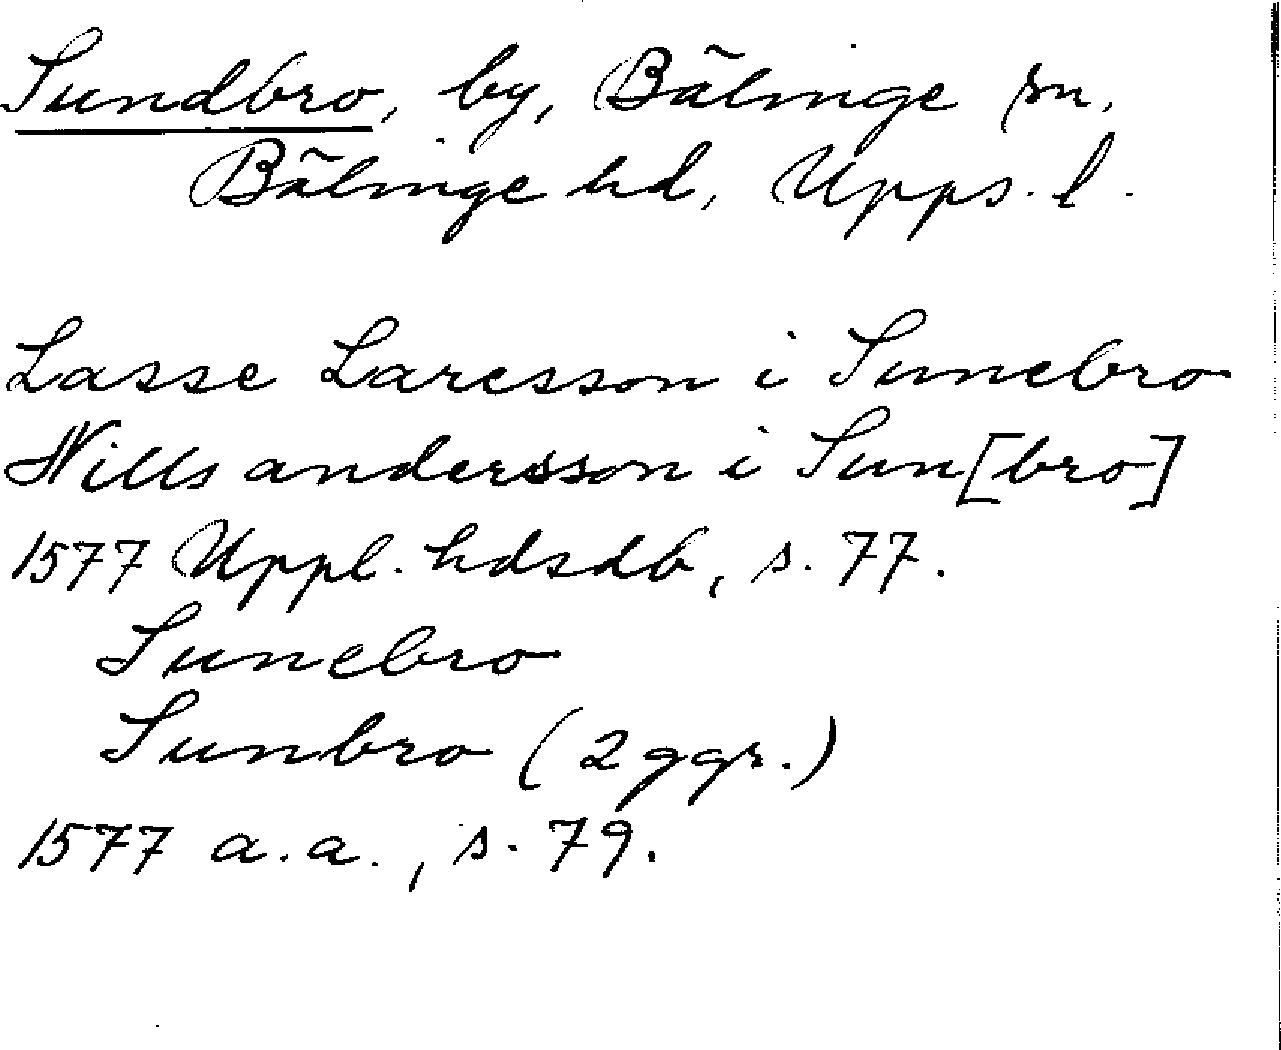 Sundbro, by, Bälinge sn,
Bälinge hd, Upps. l.
Lasse Laresson i Sunebro
Nills andersson i Sun[bro]
1577 Uppl. hdsdb, s. 77.
Sunebro
Sunbro (2 ggr.)
1577 a.a., s. 79.